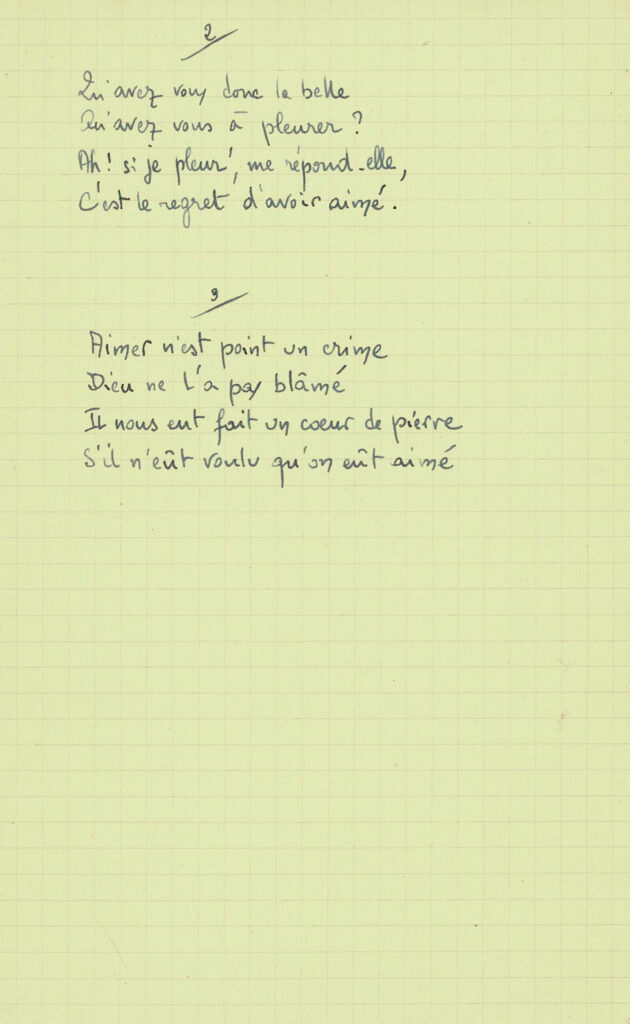 2
Qu'avez vous donc la belle
Qu'avez vous à pleurer ?
Ah ! si je pleur', me répond-elle,
C'est le regret d'avoir aimé.
3
Aimer n'est point un crime
Dieu ne l'a pas blâmé
Il nous eut fait un coeur de pierre
S'il n'eût voulu qu'on eût aimé